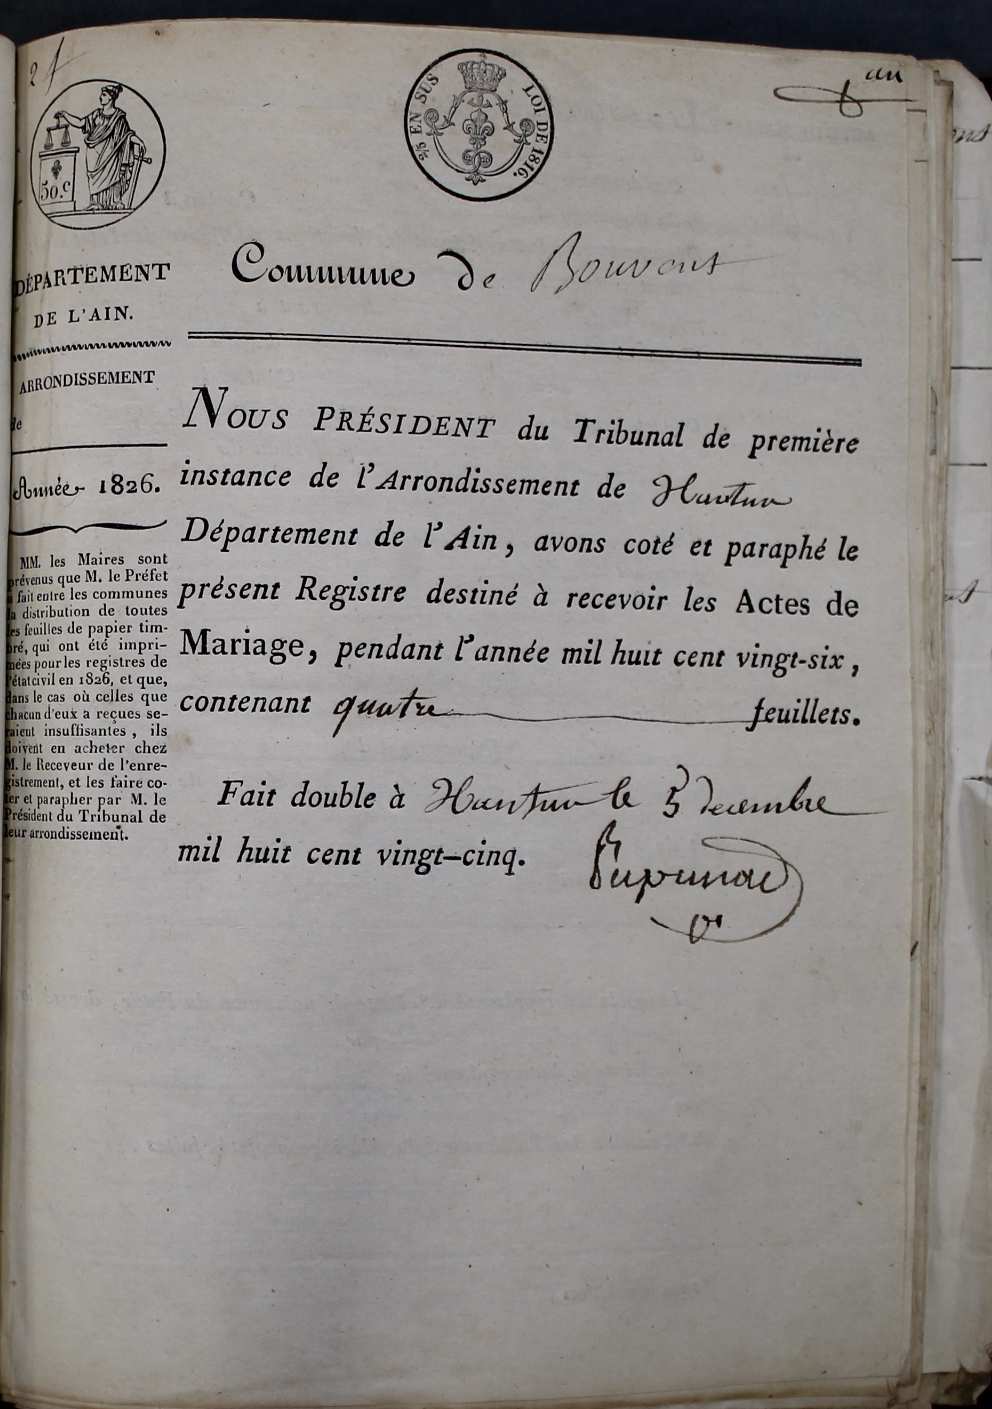 2 f
50.c
2/5 EN SUS LOI DE 1816.
an
DÉPARTEMENT
DE L'AIN.
ARRONDISSEMENT
de
Année 1826.
MM. les Maires sont
prévenus que M. le Préfet
a fait entre les communes
la distribution de toutes
les feuilles de papier tim-
bré, qui ont été impri-
mées pour les registres de
l'état civil en 1826, et que,
dans le cas où celles que
chacun d'eux a reçues se-
raient insuffisantes, ils
doivent en acheter chez
M. le Receveur de l'enre-
gistrement, et les faire co-
ter et parapher par M. le
Président du Tribunal de
leur arrondissement.
Commune de Bouvent
NOUS PRÉSIDENT du Tribunal de première
instance de l'Arrondissement de Nantua
Département de l'Ain, avons coté et paraphé le
présent Registre destiné à recevoir les Actes de
Mariage, pendant l'année mil huit cent vingt-six,
contenant quatre feuillets.
Fait double à Nantua le 5 decembre
mil huit cent vingt-cinq.